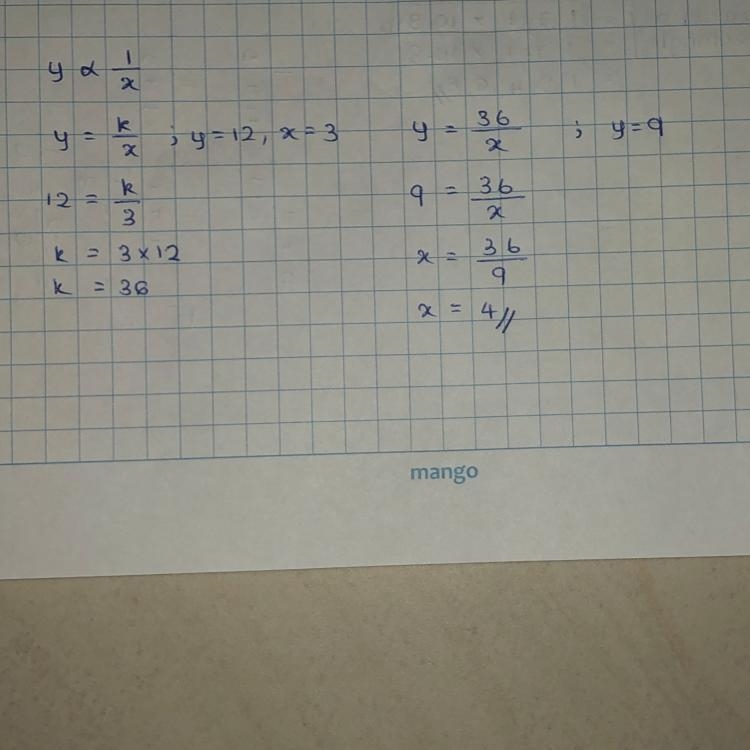 y ∝ 1/x
y = k/x ; y=12, x=3
12 = k/3
k = 3×12
k = 36
y = 36/x ; y=9
9 = 36/x
x = 36/9
x = 4//
mango